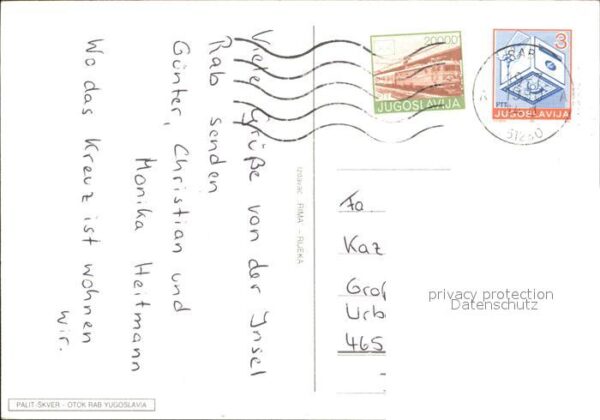 Viele Grüße von der Insel
Rab senden
Günter, Christian und
Monika Heitmann
Wo das Kreuz ist wohnen
wir.
PALIT-ŠKVER - OTOK RAB YUGOSLAVIA
izdavač "RIMA" - RIJEKA
20000
JUGOSLAVIJA
3
PTT
JUGOSLAVIJA
RAB
51280
Fa
Kaz
Urb
465
privacy protection
Datenschutz